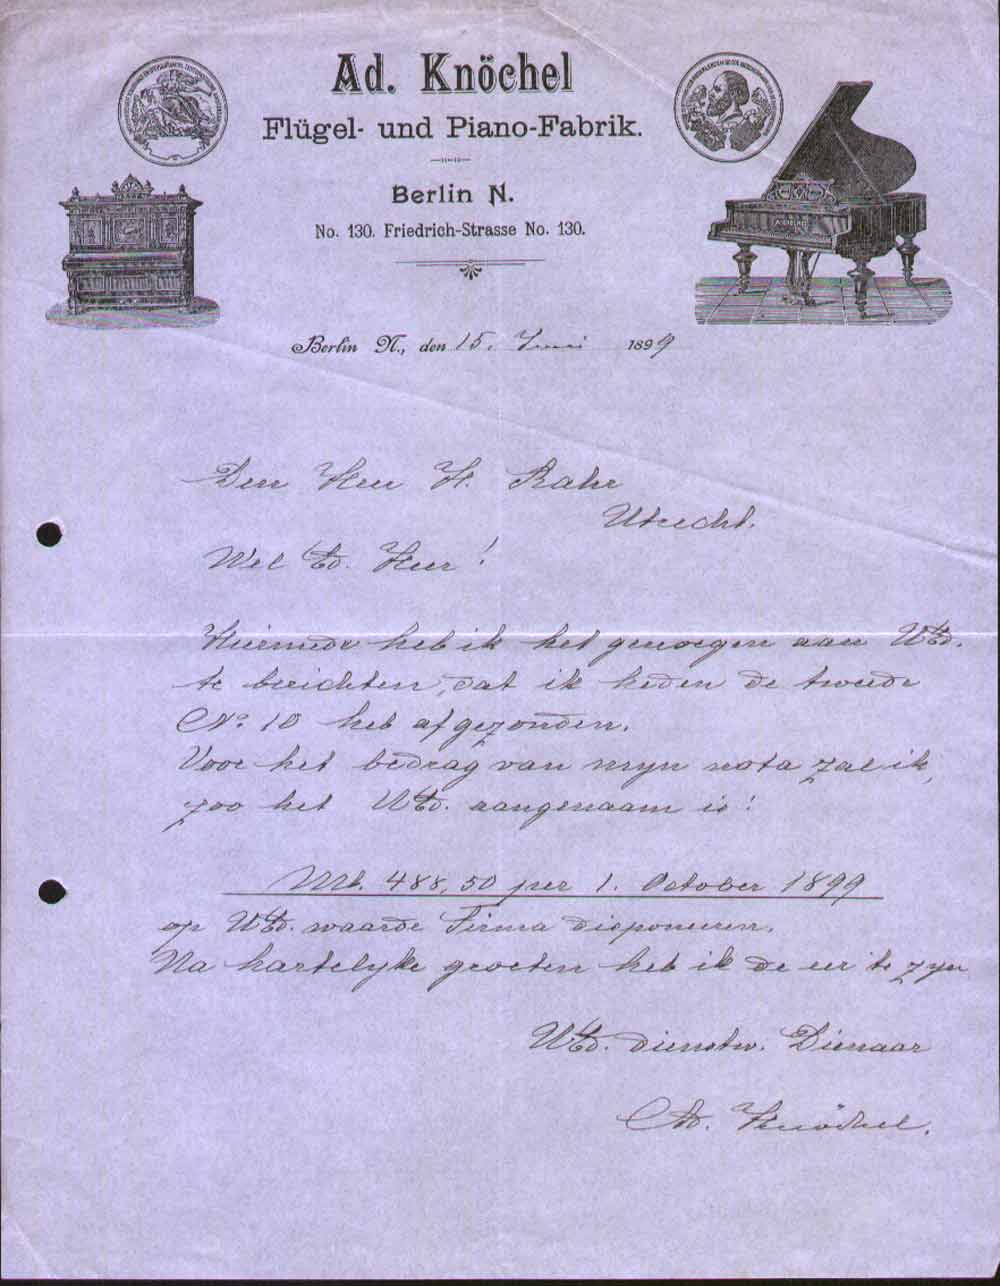 Ad. Knöchel
Flügel- und Piano-Fabrik.
Berlin N.
No. 130. Friedrich-Strasse No. 130.
Berlin N., den 15. Juni 1899
Den Heer H. Rahr
Utrecht.
Wel Ed. Heer!
Hiermede heb ik het genoegen aan UEd.
te berichten, dat ik heden de tweede
No 10 heb afgezonden.
Voor het bedrag van mijn nota zal ik,
zoo het UEd. aangenaam is!
Mk. 488,50 per 1. October 1899
op UEd. waarde Firma disponeren.
Na hartelijke groeten heb ik de eer te zijn
UEd. dienstw. Dienaar
Ad. Knöchel.